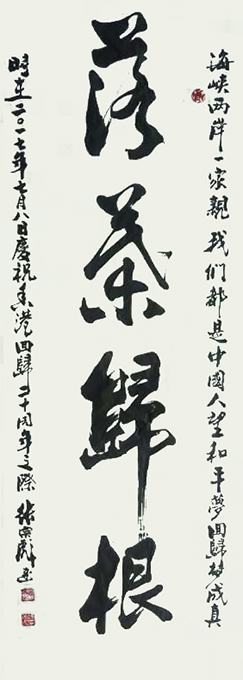 海峡两岸一家亲我们都是中國人望和平夢回歸梦成真
落葉歸根
時在二〇一七年七月八日慶祝香港回歸二十周年之際